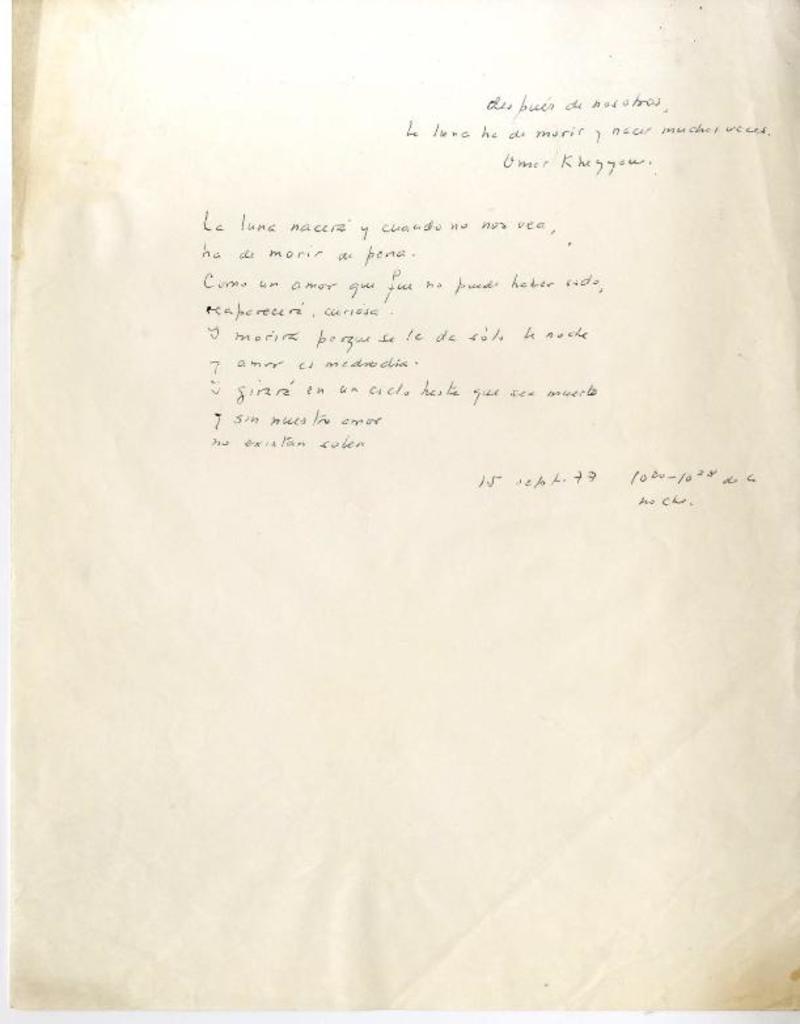 después de nosotros,
la luna ha de morir y nacer muchas veces.
Omar Kheyyam.
La luna nacerá y cuando no nos vea,
ha de morir de pena.
Como un amor que fue no puede haber sido,
reaparecerá, curiosa.
Y morirá porque se le da sólo la noche
y amor es mediodía.
Y girará en un cielo hasta que sea muerto
y sin nuestro amor
no existan
15 sept. 77 10²⁰-10²⁸ de la
noche.